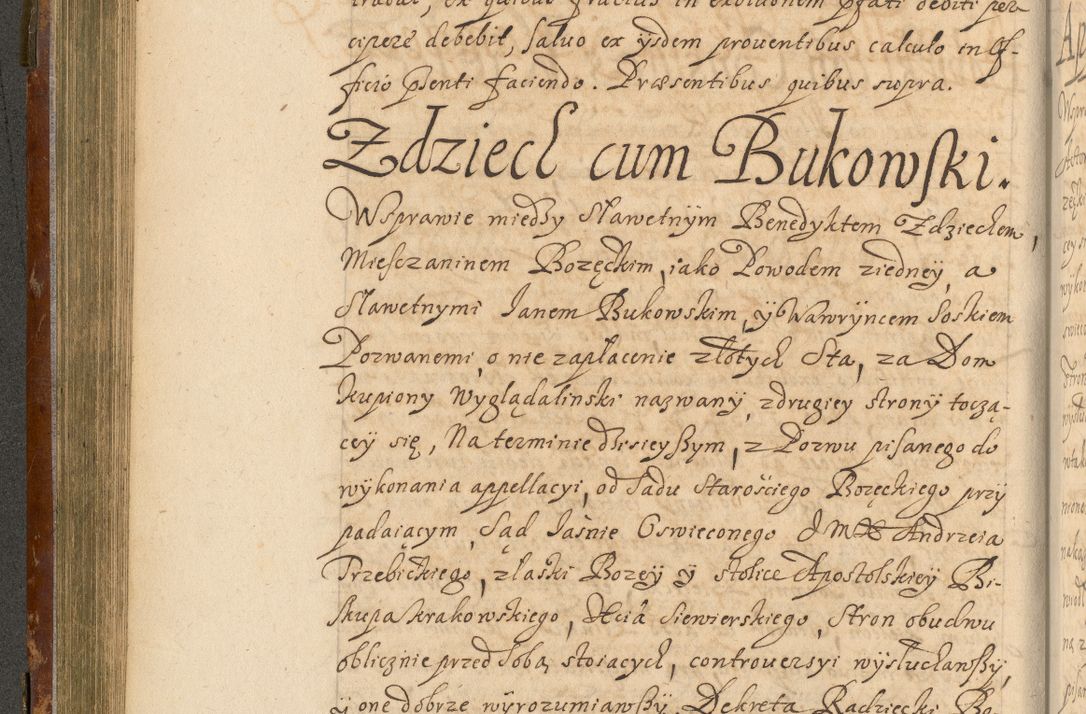 ex quibus gratius in exolutionem pfati debiti per-
cipere debebit, saluo ex ÿsdem prouentibus calculo in Of-
ficio pnti faciendo. Præsentibus quibus supra.
Zdziech cum Bukowski.
Wsprawie miedzy Sławetnÿm Benedyktem Zdziechem,
Miesczaninem Bozęckim, iako Powodem ziedneÿ, a
Sławetnymi Ianem Bukowskim, ÿ Wawrÿncem Soskiem
Pozwanemi, o nie zapłacenie złotych Sta, za Dom
kupiony Wyglądalinski nazwany, zdrugiey stronÿ toczą-
ceÿ się, Na terminie dzisieyszym, z Pozwu pisanego do
wÿkonania appellacyi, od Sadu Starościego Bozęckiego przÿ
padaiącym, Sąd Iaśnie Oswieconego J M X Andrzeia
Trzebickiego, złaski Bozeÿ ÿ stolice Apostolskieÿ Bi-
skupa krakowskiego, Xcia Siewierskiego, Stron obudwu
oblicznie przed Sobą stoiacych, controuersyi wÿsłuchawszy,
ÿ one dobrze wÿrozumiawszy, Dekreta Radziecki Bo-